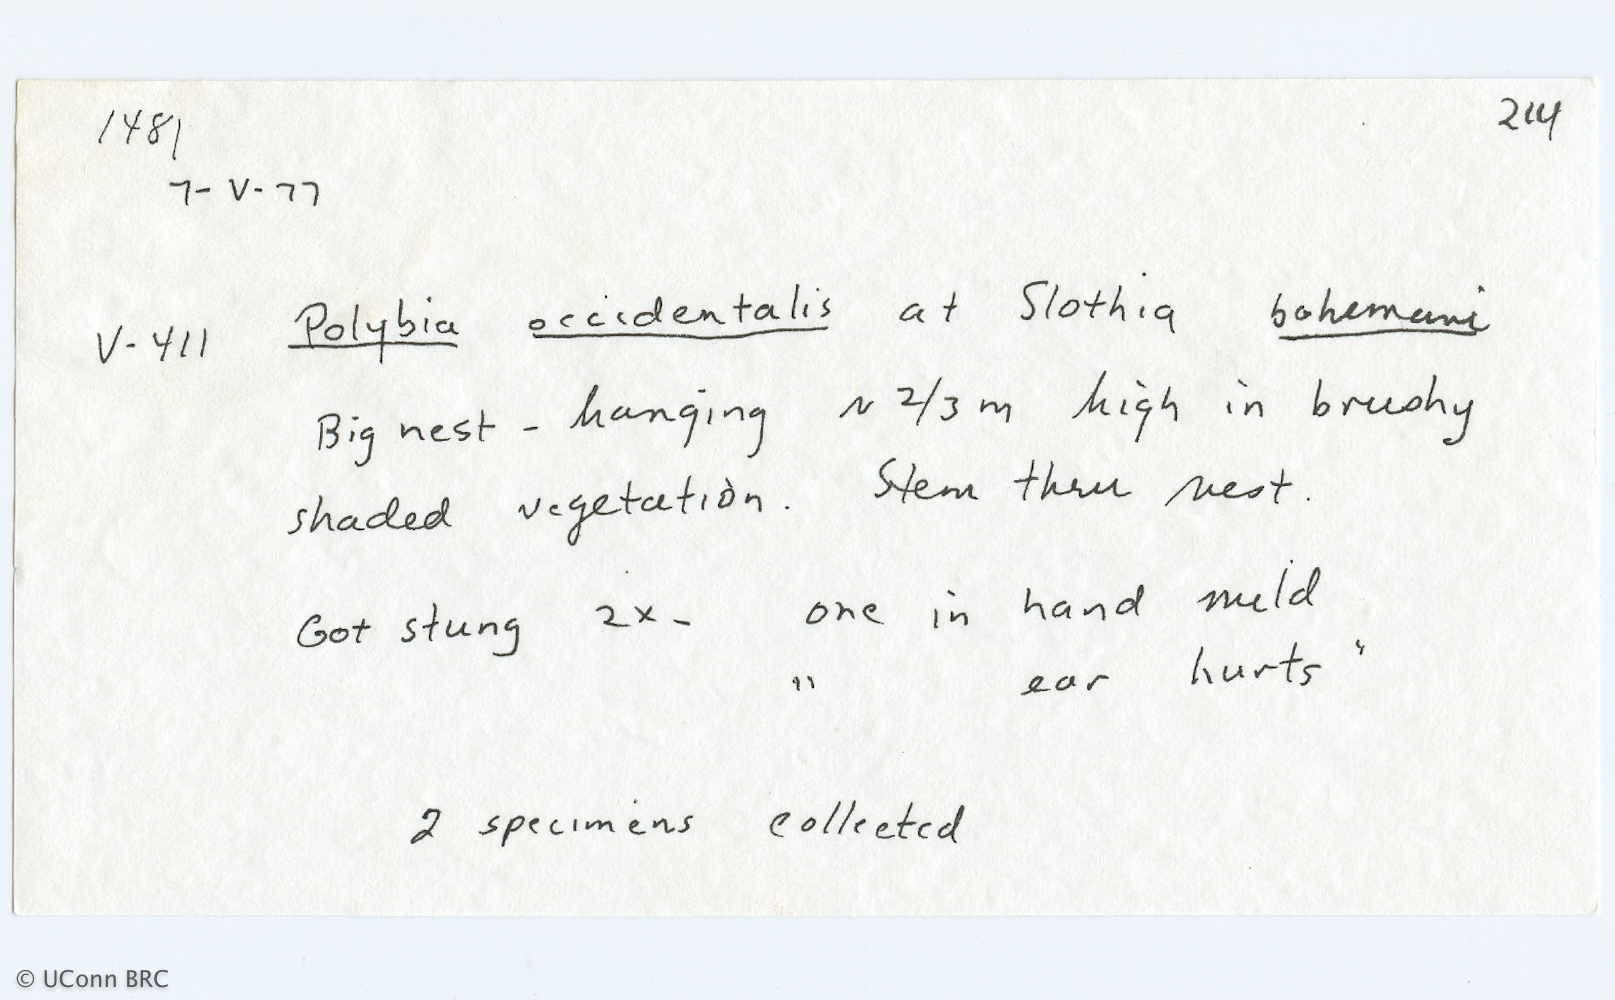 1481
214
7-V-77
V-411 Polybia occidentalis at Slothia bohemani
Big nest - hanging ~ 2/3 m high in brushy
shaded vegetation. Stem thru nest.
Got stung 2x - one in hand mild
" ear hurts "
2 specimens collected
© UConn BRC